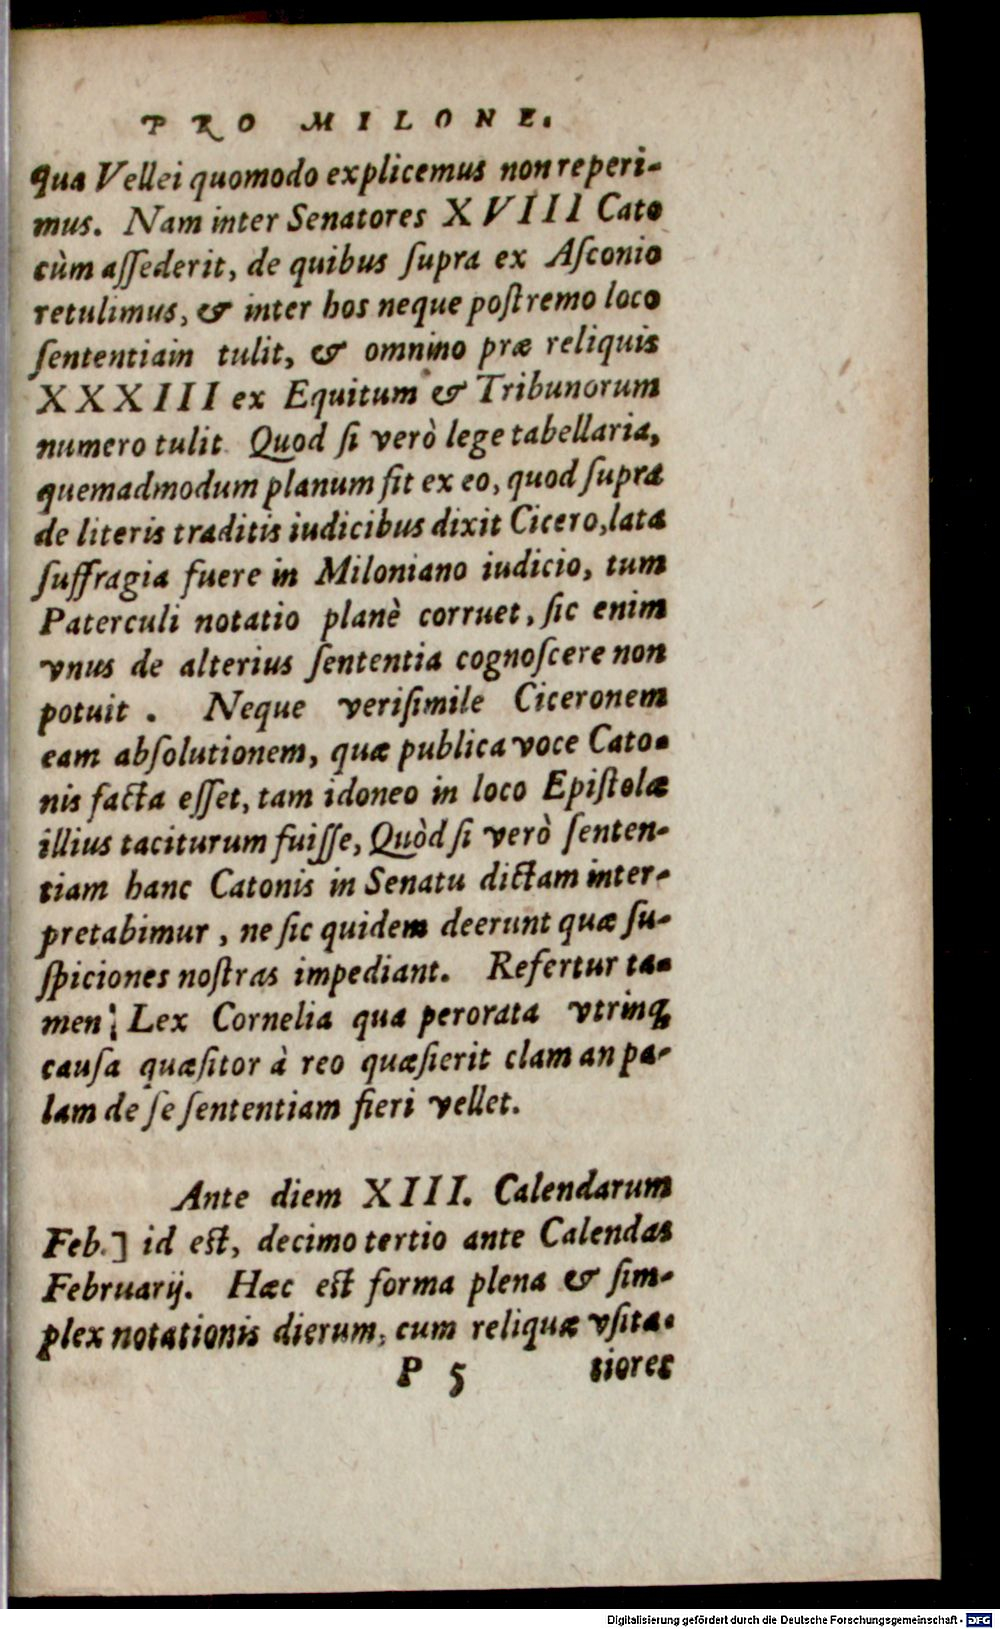 PRO MILONE.
qua Vellei quomodo explicemus non reperi-
mus. Nam inter Senatores XVIII Cato
cùm aſſederit, de quibus ſupra ex Aſconio
retulimus, & inter hos neque poſtremo loco
ſententiam tulit, & omnino præ reliquis
XXXIII ex Equitum & Tribunorum
numero tulit. Quod ſi verò lege tabellaria,
quemadmodum planum fit ex eo, quod ſupra
de literis traditis iudicibus dixit Cicero, lata
ſuffragia fuere in Miloniano iudicio, tum
Paterculi notatio planè corruet, ſic enim
vnus de alterius ſententia cognoſcere non
potuit. Neque veriſimile Ciceronem
eam abſolutionem, quæ publica voce Cato-
nis facta eſſet, tam idoneo in loco Epiſtolæ
illius taciturum fuiſſe, Quòd ſi verò ſenten-
tiam hanc Catonis in Senatu dictam inter-
pretabimur, ne ſic quidem deerunt quæ ſu-
ſpiciones noſtras impediant. Refertur ta-
men; Lex Cornelia qua perorata vtrinq;
cauſa quæſitor à reo quæſierit clam an pa-
lam de ſe ſententiam fieri vellet.
Ante diem XIII. Calendarum
Feb.] id eſt, decimo tertio ante Calendas
Februarij. Hæc eſt forma plena & ſim-
plex notationis dierum, cum reliquæ vſita-
P 5 tiores
Digitalisierung gefördert durch die Deutsche Forschungsgemeinschaft - DFG